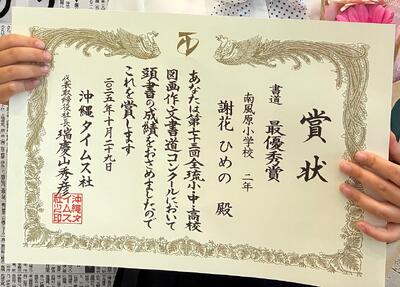 賞状
書道 最優秀賞
南風原小学校 二年
謝花 ひめの 殿
あなたは第七十三回全琉小・中・高校
図画作文書道コンクールにおいて
頭書の成績をおさめましたので
これを賞します
二〇二五年十月二十九日
沖縄タイムス社
代表取締役社長 瑞慶山秀彦
沖縄タイムス社之印